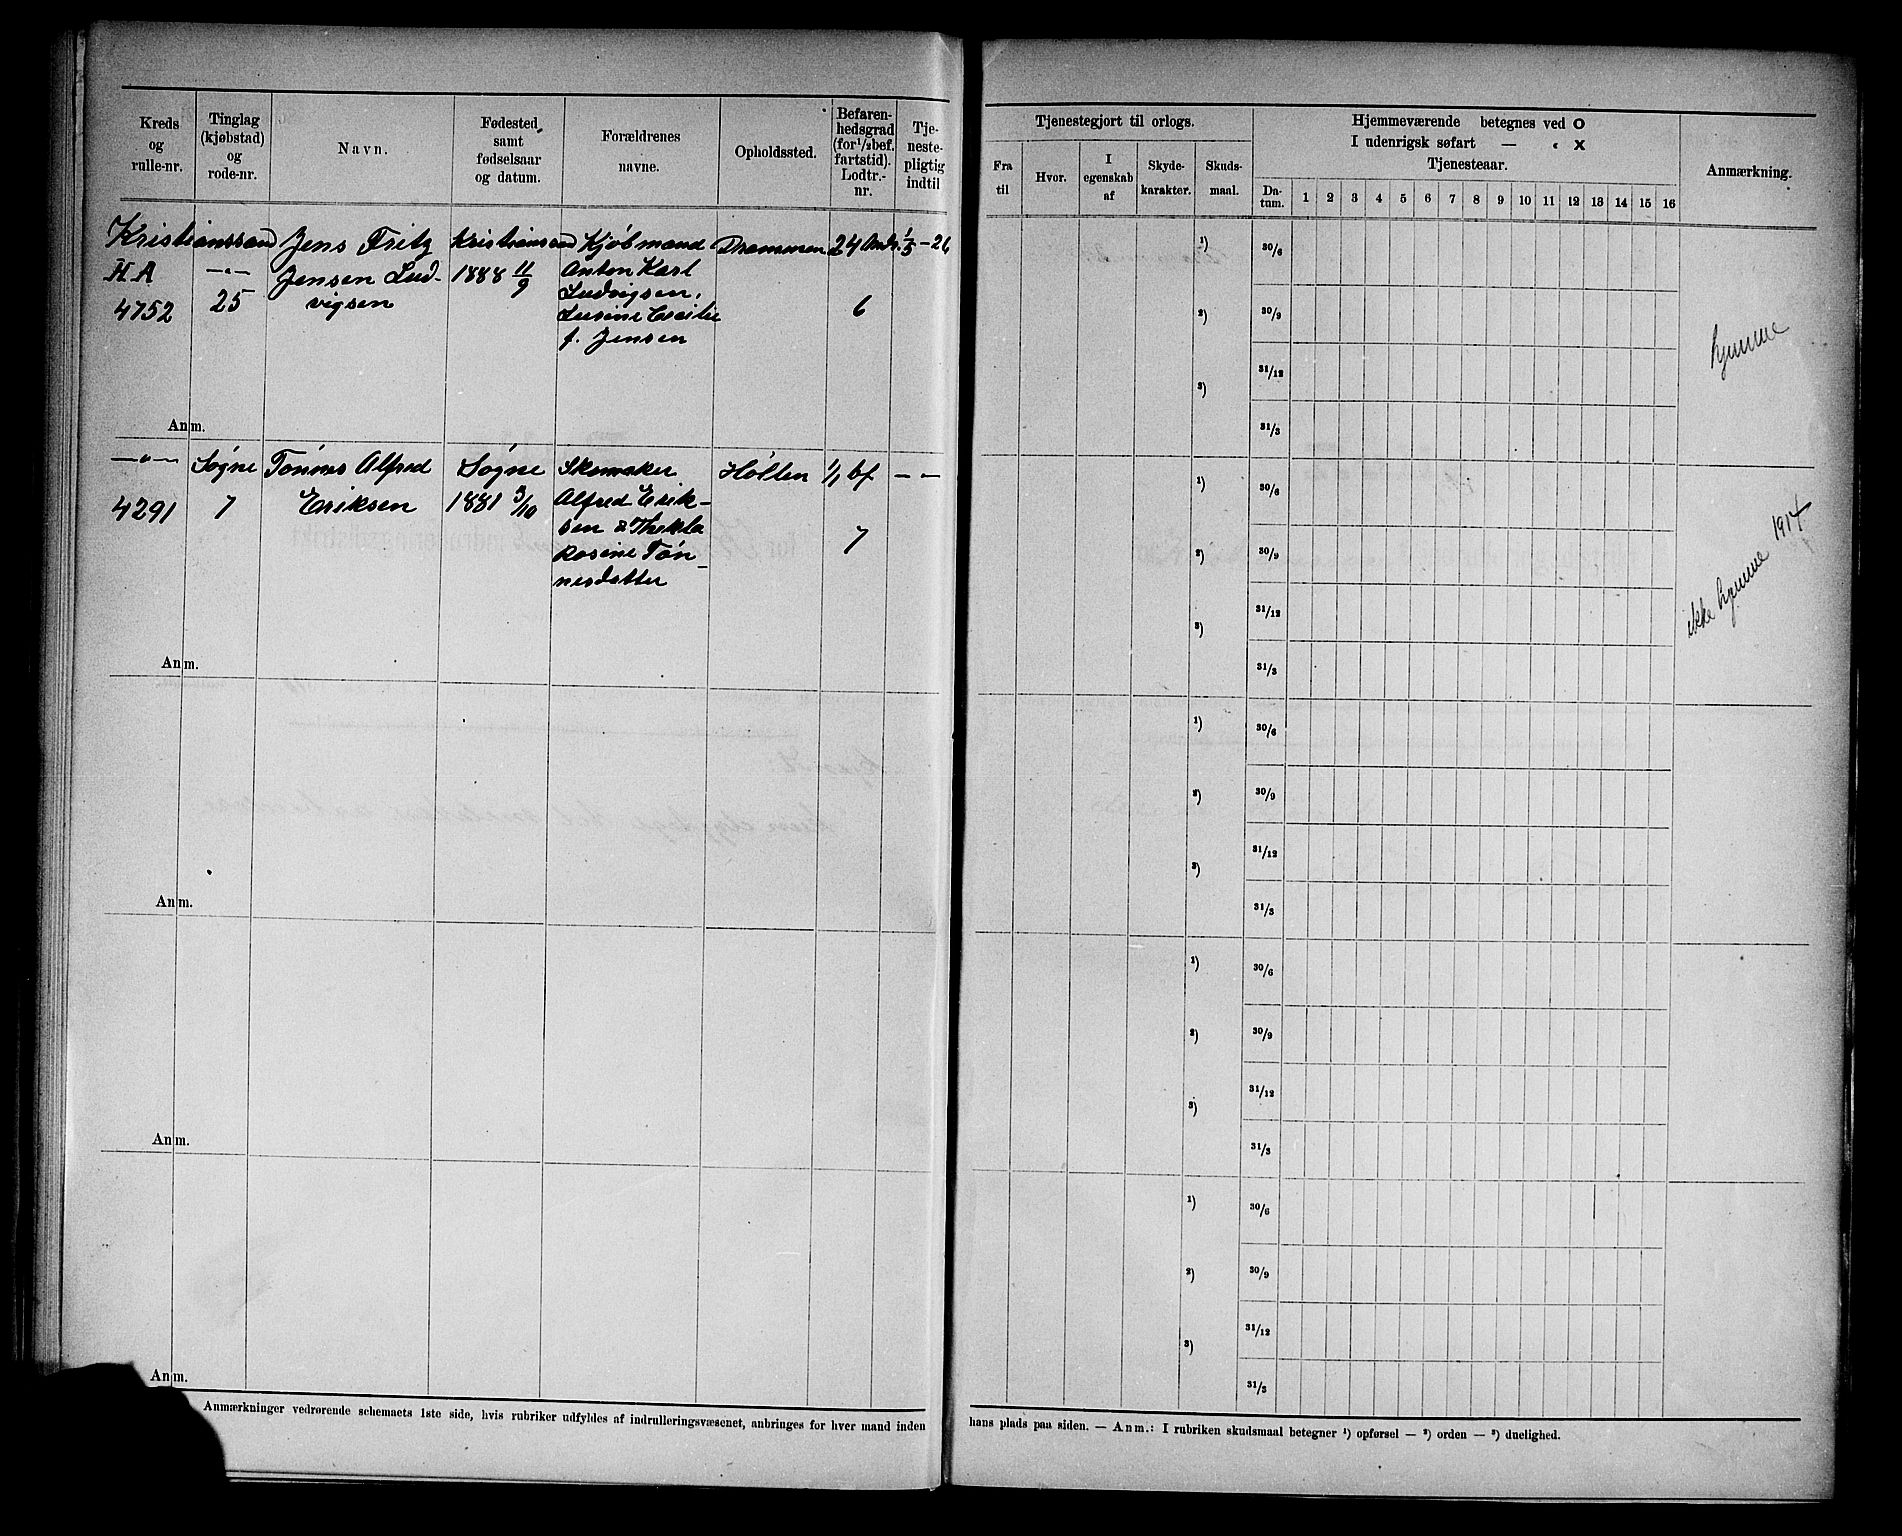 Kreds
og
rulle-nr.
Tinglag
(kjøbstad)
og
rode-nr.
Navn.
Fødested
samt
fødselsaar
og datum.
Forældrenes
navne.
Opholdssted.
Befaren-
hedsgrad
(for ½ bef.
fartstid).
Lodtr.-
nr.
Tje-
neste-
pligtig
indtil
Tjenestegjort til orlogs.
Fra
til
Hvor.
I
egenskab
af
Skyde-
karakter.
Skuds-
maal.
Hjemmeværende betegnes ved O
I udenrigsk søfart — „ X
Tjenesteaar.
Da-
tum.
1 2 3 4 5 6 7 8 9 10 11 12 13 14 15 16
Anmærkning.
Kristianssand
H.A
4752
—"—
25
Jens Fritz
Jensen Lud-
vigsen
Kristianssand
1888 11/9
Kjøbmand
Anton Karl
Ludvigsen,
Lusine Cecilie
f. Jensen
Drammen
24 Mndr.
6
1/5 - 26
Anm.
1)
2)
3)
30/6
30/9
31/12
31/3
hjemme
—"—
4291
Søgne
7
Tønnes Alfred
Eriksen
Søgne
1881 3/10
Skomaker
Alfred Erik-
sen & Thekla
Rosine Tøn-
nesdatter
Høllen
1/1 bf
7
— —
Anm.
1)
2)
3)
30/6
30/9
31/12
31/3
ikke hjemme 1914
Anm.
1)
2)
3)
30/6
30/9
31/12
31/3
Anm.
1)
2)
3)
30/6
30/9
31/12
31/3
Anm.
1)
2)
3)
30/6
30/9
31/12
31/3
Anmærkninger vedrørende schemaets 1ste side, hvis rubriker udfyldes af indrulleringsvæsenet, anbringes for hver mand inden
hans plads paa siden. — Anm.: I rubriken skudsmaal betegner ¹) opførsel — ²) orden — ³) duelighed.